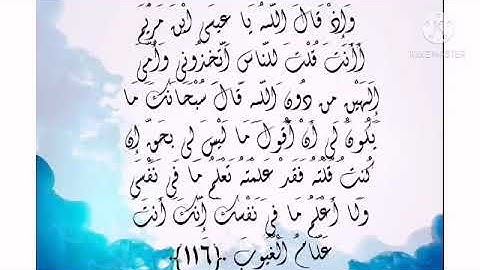 وَإِذْ قَالَ اللَّهُ يَا عِيسَى ابْنَ مَرْيَمَ
أَأَنْتَ قُلْتَ لِلنَّاسِ اتَّخِذُونِي وَأُمِّيَ
إِلَهَيْنِ مِنْ دُونِ اللَّهِ قَالَ سُبْحَانَكَ مَا
يَكُونُ لِي أَنْ أَقُولَ مَا لَيْسَ لِي بِحَقٍّ إِنْ
كُنْتُ قُلْتُهُ فَقَدْ عَلِمْتَهُ تَعْلَمُ مَا فِي نَفْسِي
وَلَا أَعْلَمُ مَا فِي نَفْسِكَ إِنَّكَ أَنْتَ
عَلَّامُ الْغُيُوبِ ﴿١١٦﴾
KINEMASTER